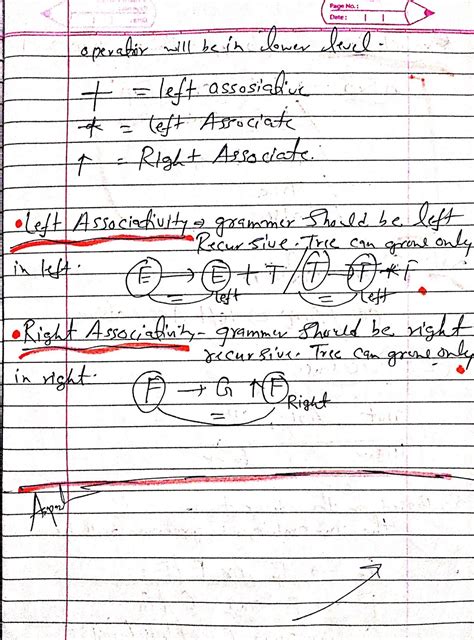 Page No.:
Date:
operator will be in lower level.
+ = left assosiative
* = left Associate
↑ = Right Associate.
• Left Associativity → grammer should be left
Recursive. Tree can grone only
in left. E → E + T / T → F * T
= left = left
• Right Associativity - grammer should be right
recursive. Tree can grone only
in right.
F → G ↑ F
= Right